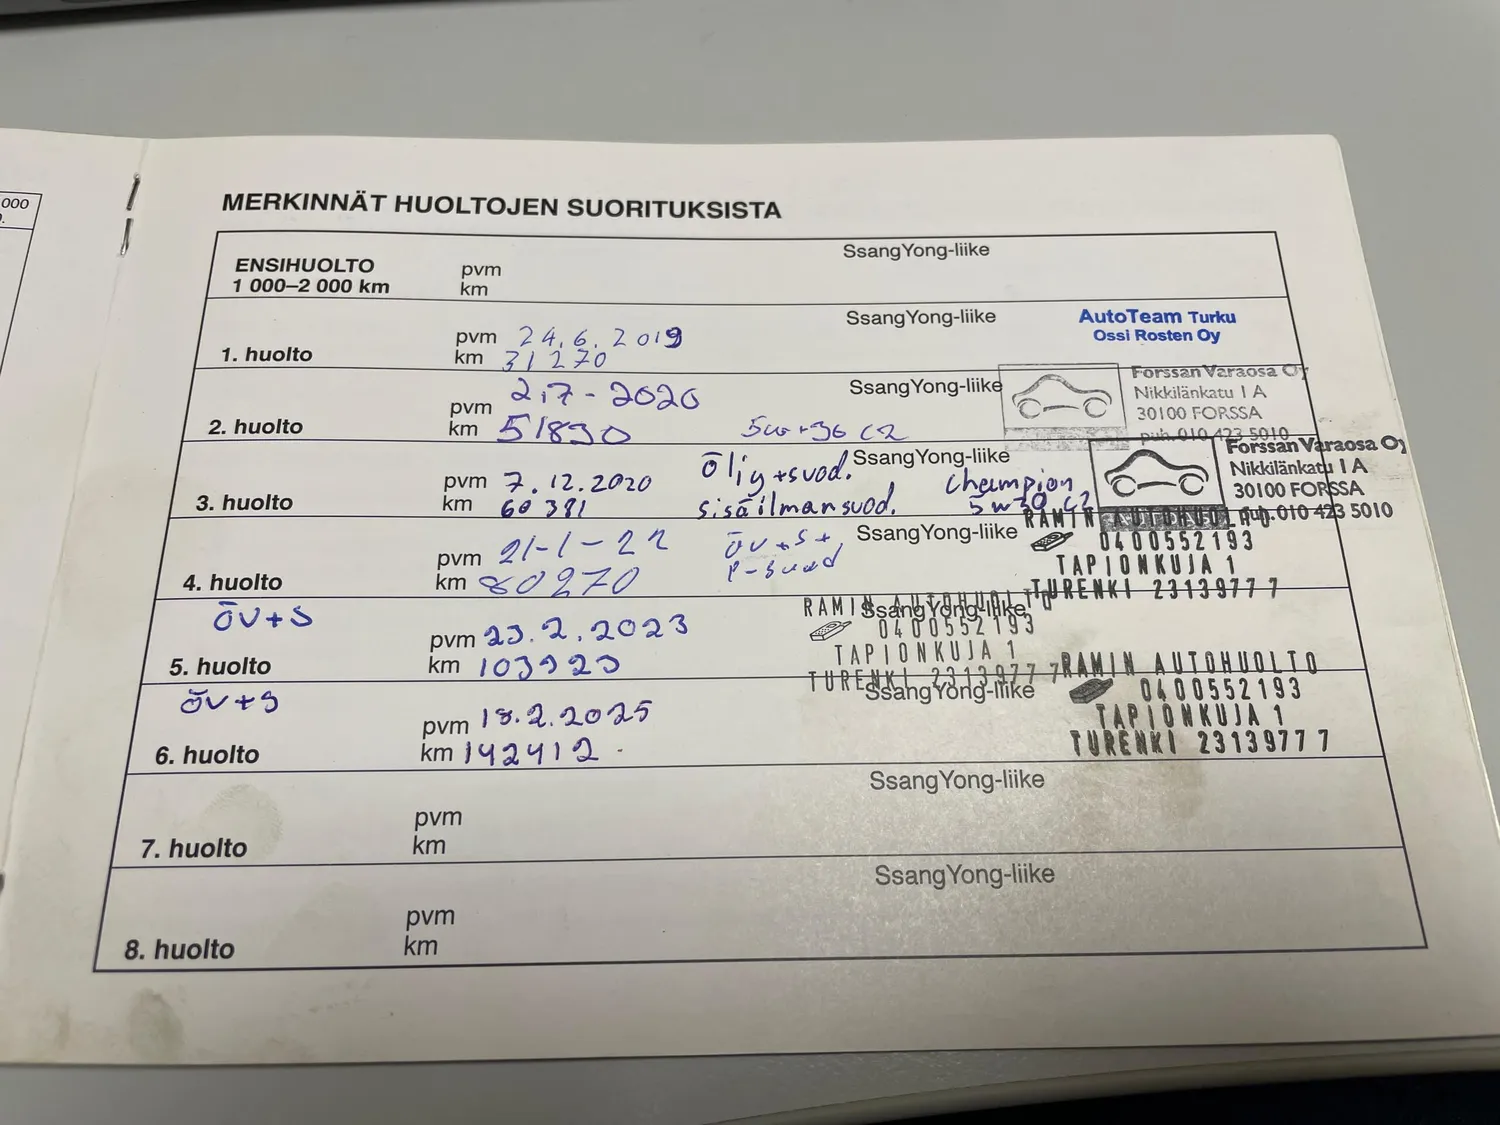 000
MERKINNÄT HUOLTOJEN SUORITUKSISTA
ENSIHUOLTO
1 000–2 000 km
pvm
km
SsangYong-liike
1. huolto
pvm 24.6.2019
km 31270
SsangYong-liike
AutoTeam Turku
Ossi Rosten Oy
2. huolto
pvm 2.7-2020
km 51830
5w-30 C2
SsangYong-liike
Forssan Varaosa Oy
Nikkilänkatu 1 A
30100 FORSSA
puh. 010 423 5010
3. huolto
pvm 7.12.2020
km 60381
öljy+suod.
sisäilmansuod.
SsangYong-liike
Champion
5w30 C2
Forssan Varaosa Oy
Nikkilänkatu 1 A
30100 FORSSA
puh. 010 423 5010
4. huolto
pvm 21-1-22
km 80270
öv+s+
P-suod
SsangYong-liike
RAMIN AUTOHUOLTO
0400552193
TAPIONKUJA 1
TURENKI 23139777
öv+s
5. huolto
pvm 23.2.2023
km 103923
SsangYong-liike
RAMIN AUTOHUOLTO
0400552193
TAPIONKUJA 1
TURENKI 23139777
öv+s
6. huolto
pvm 18.2.2025
km 142412
SsangYong-liike
RAMIN AUTOHUOLTO
0400552193
TAPIONKUJA 1
TURENKI 23139777
7. huolto
pvm
km
SsangYong-liike
8. huolto
pvm
km
SsangYong-liike